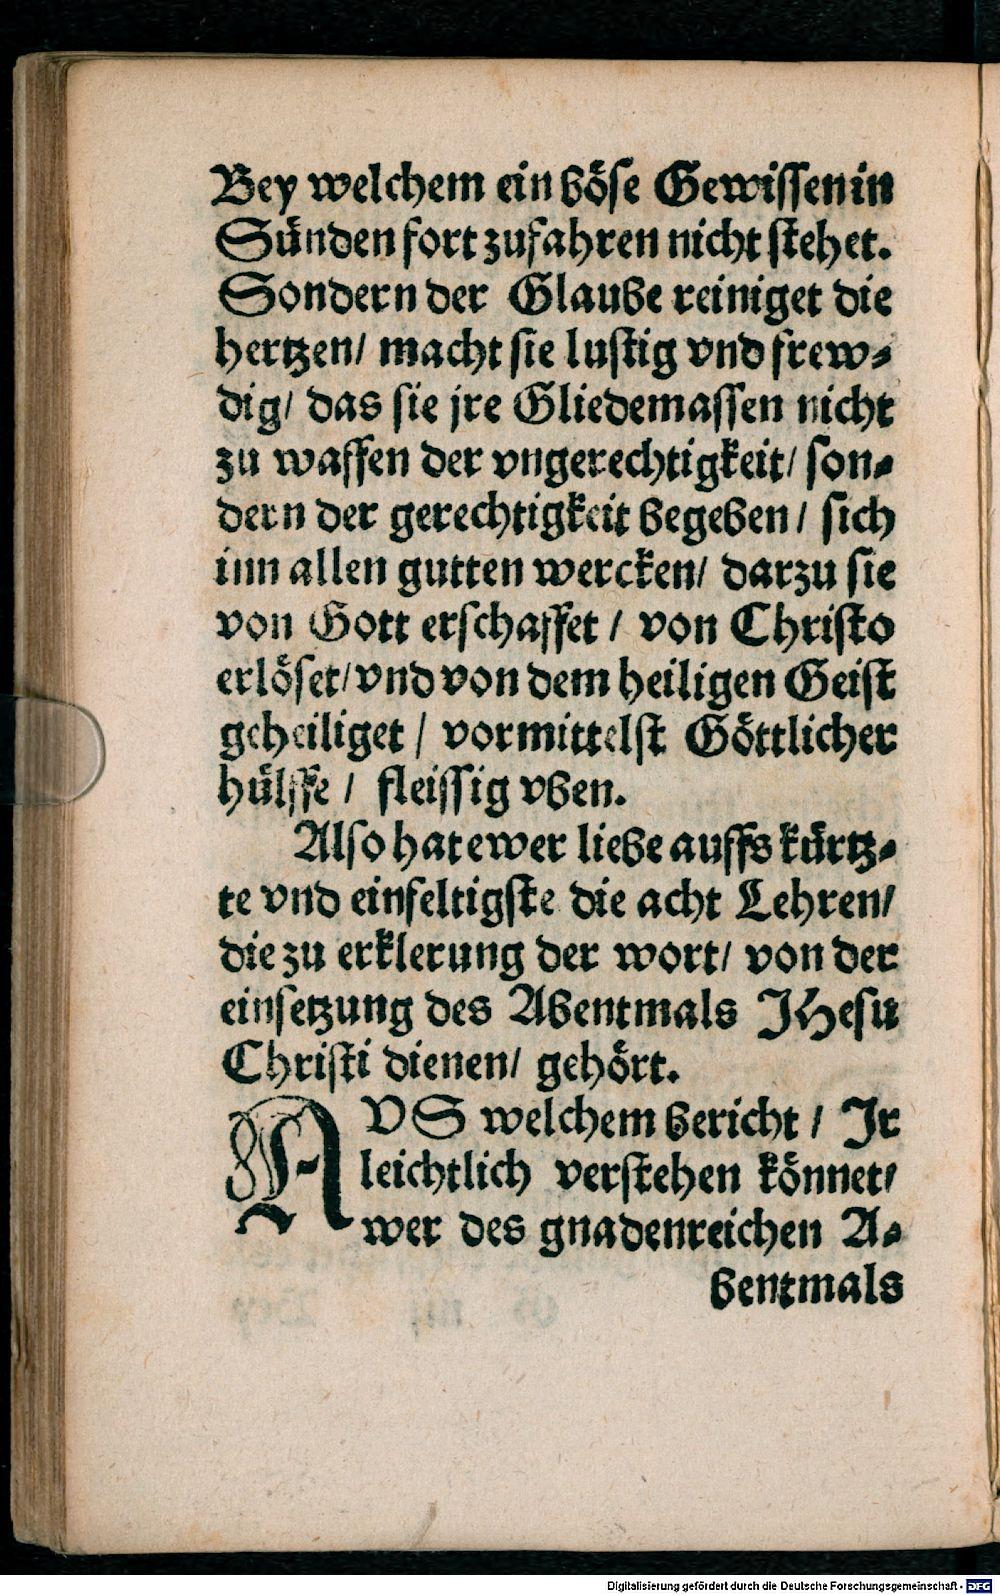 Bey welchem ein böse Gewissen in
Sünden fort zufahren nicht stehet.
Sondern der Glaube reiniget die
hertzen/ macht sie lustig vnd frew⸗
dig/ das sie jre Gliedemassen nicht
zu waffen der vngerechtigkeit/ son⸗
dern der gerechtigkeit begeben/ sich
inn allen gutten wercken/ darzu sie
von Gott erschaffet/ von Christo
erlöset/ vnd von dem heiligen Geist
geheiliget/ vormittelst Göttlicher
hülffe/ fleissig vben.
Also hat ewer liebe auffs kürtz⸗
te vnd einfeltigste die acht Lehren/
die zu erklerung der wort/ von der
einsetzung des Abentmals JHesu
Christi dienen/ gehört.
AVS welchem bericht/ Jr
leichtlich verstehen könnet/
wer des gnadenreichen A⸗
bentmals
Digitalisierung gefördert durch die Deutsche Forschungsgemeinschaft - DFG